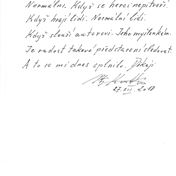 Normálni. Když se herci nepitvoří.
Když hrají lidi. Normální lidi.
Když slouží autorovi. Jeho myšlenkám.
Je radost takové představení sledovat.
A to se mi dnes splnilo. Děkuji
27. 2018